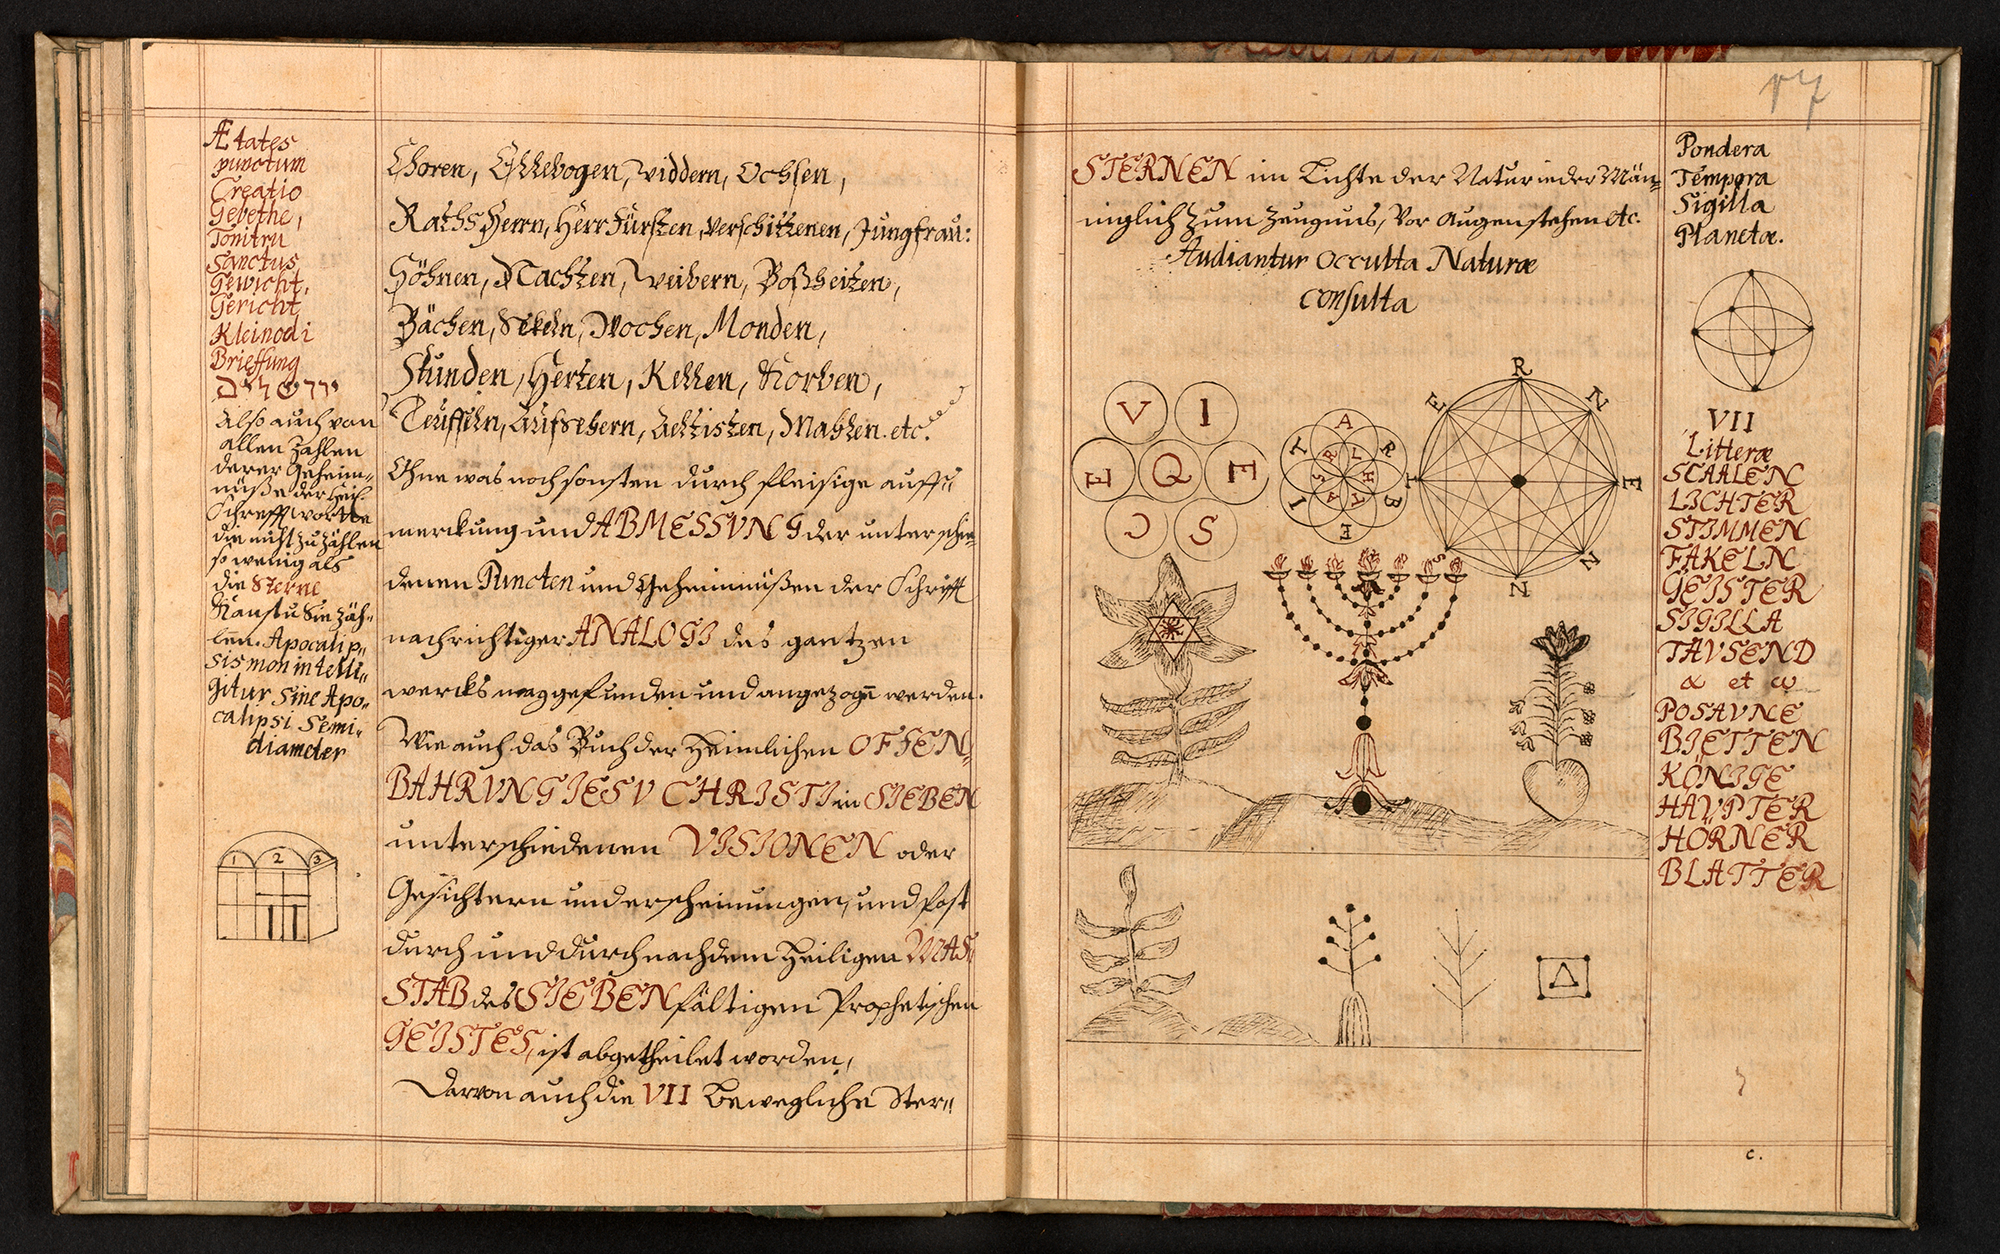 Ætates
punctum
Creatio
Gebethe,
Tonitru
Sanctus
Gewicht,
Gericht
Kleinodi
Brieffung
Also auch von
allen Zahlen
derer Geheim„
nüße der Heil
Schrifft worte
die nicht zu zählen
so wenig als
die Sterne
Kanstu Sie zäh„
len. Apocalip„
sis non intelli„
gitur Sine Apo„
calipsi Semi„
diameter
1 2 3
Choren, Ellebogen, Widdern, Ochsen,
Raths Herrn, Herr Fürsten, Verschittenen, Jungfrau:
Söhnen, Nachten, Weibern, Boßheiten,
Bächen, Sekeln, Wochen, Monden,
Stunden, Herten, Kellen, Korben,
Teuffeln, Aufsehern, Mahlen. etc.
Ohne was noch sonsten durch fleisige auff„
merckung und ABMESSVNG der unterschie„
denen Puncten und Geheimnüßen der Schrifft
nach richtiger ANALOGI des gantzen
wercks mag gefunden und angezogen werden.
Wie auch das Buch der Heimlichen OFFEN„
BAHRVNG IESV CHRISTI in SIEBEN
unterschiedenen VISIONEN oder
Gesichtern und erscheinungen, und fast
durch und durch nach dem Heiligen MAS„
STAB des SIEBENfältigen Prophetischen
GEISTES, ist abgetheilet worden,
Darvon auch die VII Bewegliche Ster„
17
STERNEN im Lichte der Natur ieder Män„
niglich zum Zeugnus, Vor Augen stehen etc.
Audiantur occulta Naturæ
consulta
V I
E Q E
C S
A R B E I T
R L H A A S
R N E N N S I E
Pondera
Tempora
Sigilla
Planetæ.
VII
Litteræ
SCAALEN
LICHTER
STIMMEN
FAKELN
GEISTER
SIGILLA
TAVSEND
α et ω
POSAVNE
BIETTEN
KÖNIGE
HAVPTER
HÖRNER
BLATTER
c.